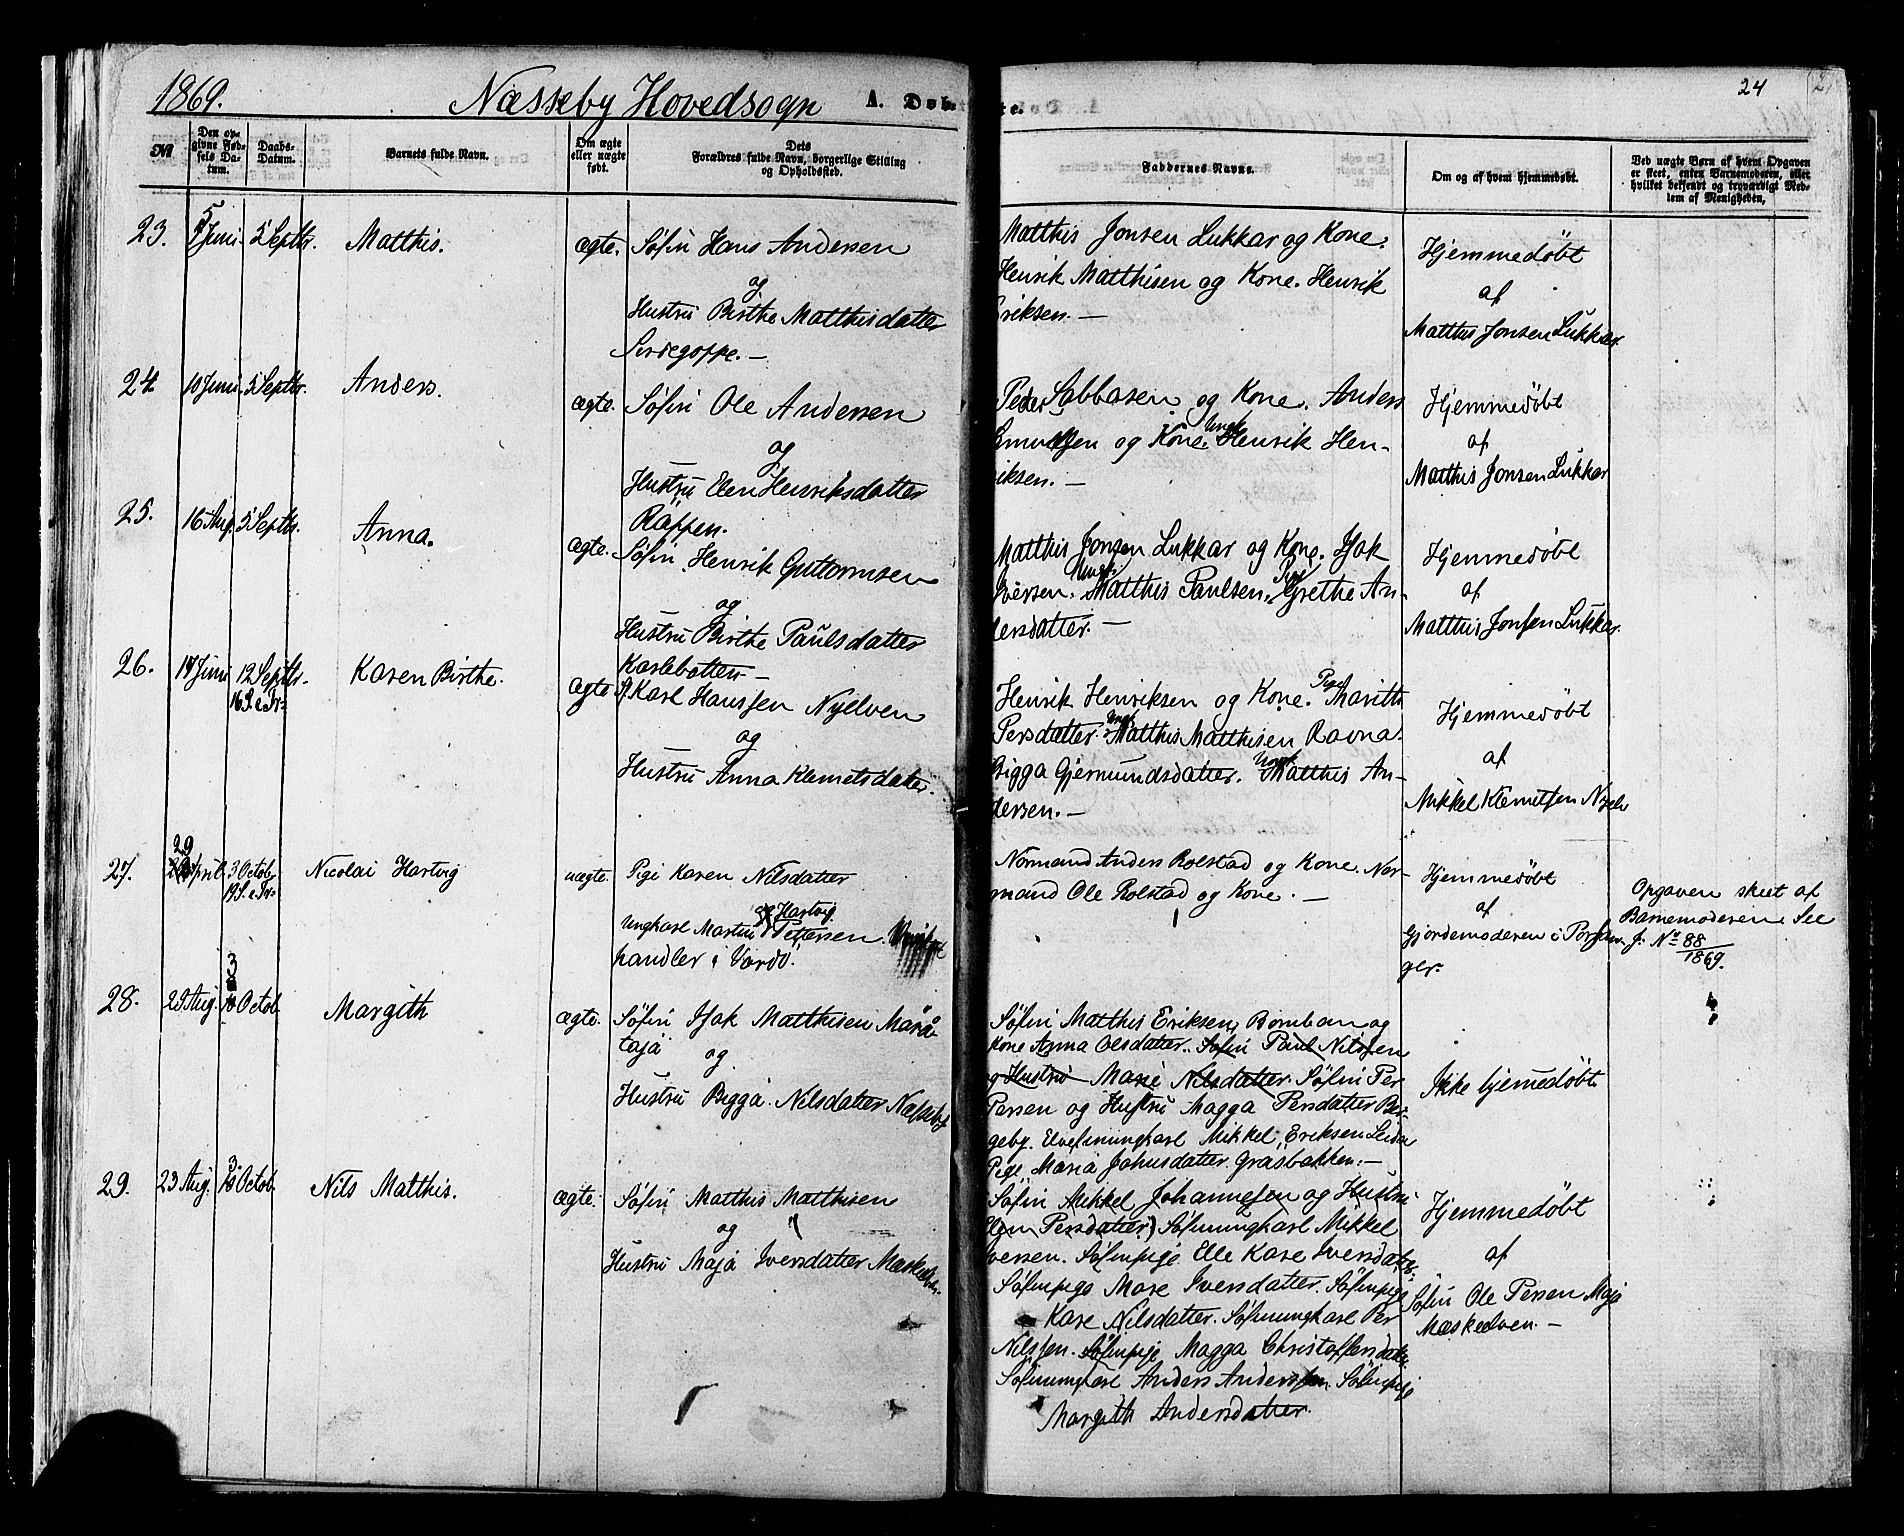 1869. Næsseby Hovedsogn A. Døbte. 24
No
Den opgivne Fødsels Datum.
Daabs-Datum.
Barnets fulde Navn.
Om ægte eller uægte født.
Dets Forældres fulde Navn, borgerlige Stilling og Opholdssted.
Faddernes Navne.
Om og af hvem hjemmedøbt.
Ved uægte Børn af hvem Opgaven er skeet, enten Barnemoderen, eller hvilket bekjendt og troværdigt Medlem af Menigheden.
23. 5 Juni 5 Septbr. Matthis. ægte.
Søfin Hans Andersen
og
Hustru Birthe Matthisdatter
Matthis Jonsen Lukkar og Kone.
Henrik Matthisen og Kone. Henrik
Eriksen. —
Hjemmedøbt
af
Matthis Jonsen Lukkar.
24. 10 Juni 5 Septbr. Anders. ægte.
Søfin Ole Andersen
og
Hustru Elen Henriksdatter
Räppen.
Peder Sabbasen og Kone. Anders
og Kone. Ungk. Henrik Hen-
riksen. —
Hjemmedøbt
af
Matthis Jonsen Lukkar
25. 16 Aug. 5 Septbr. Anna. ægte.
Søfin Henrik Guttormsen
og
Hustru Birthe Paulsdatter
Karlebotten —
Matthis Jonsen Lukkar og Kone. Isak
Iversen. Ungk. Matthis Paulsen. Pige Grethe An-
dersdatter. —
Hjemmedøbt
af
Matthis Jonsen Lukkar.
26. 17 Juni 12 Septbr. Karen Birthe. ægte
16 S. e Tr.
Karl Hanssen Nyelven
og
Hustru Anna Klemetsdatter.
Henrik Henriksen og Kone. Pige Marith
Persdatter. Ungk. Matthis Matthisen Ravna
Bigga Gjermundsdatter. Ungk. Matthis An-
dersen. —
Hjemmedøbt
af
Mikkel Klemetsen Nyelv
27. 29 April 3 Octob. Nicolai Hartvig uægte.
19 S. e Tr.
Pige Karen Nilsdatter
og Hartvig
Ungkarl Martin Pettersen.
handler i Vardö.
Normand Anders Rolstad og Kone. Nor-
mand Ole Rolstad og Kone. —
Hjemmedøbt
af
Gjordemoderen i Porsan-
ger.
Opgaven skeet af
Barnemoderen. See
J. No 88/1869.
28. 29 Aug. 3 Octob. Margith ægte.
Søfin Isak Matthisen
og
Hustru Bigga Nilsdatter Næsseby
Søfin Matthis Eriksen Bomban og
Kone Anna Olsdatter. Søfin Paul Nilssen
og Hustru Marie Nilsdatter. Søfin Per
Persen og Hustru Magga Persdatter Ber-
geby. Elvesinungkarl Mikkel Eriksen
Pige Maria Johnsdatter Gräsbakken. —
Ikke hjemedøbt.
29. 23 Aug. 3 Octob. Nils Matthis. ægte.
Søfin Matthis Matthisen
og
Hustru Maja Iversdatter Mæskelven.
Søfin Mikkel Johannesen og Hustru
Elen Persdatter) Søfinungkarl Mikkel
Iversen. Søfinpige Elle Kare Iversdatter.
Søfinpige Mare Iversdatter. Søfinpige
Kare Nilsdatter. Søfinungkarl Per
Nilssen. Søfinpige Magga Christoffersdatter
Søfinungkarl Anders Anderssen Søfinpige
Margith Andersdatter.
Hjemmedøbt
af
Søfin Ole Persen Maja
Mæskelven. —